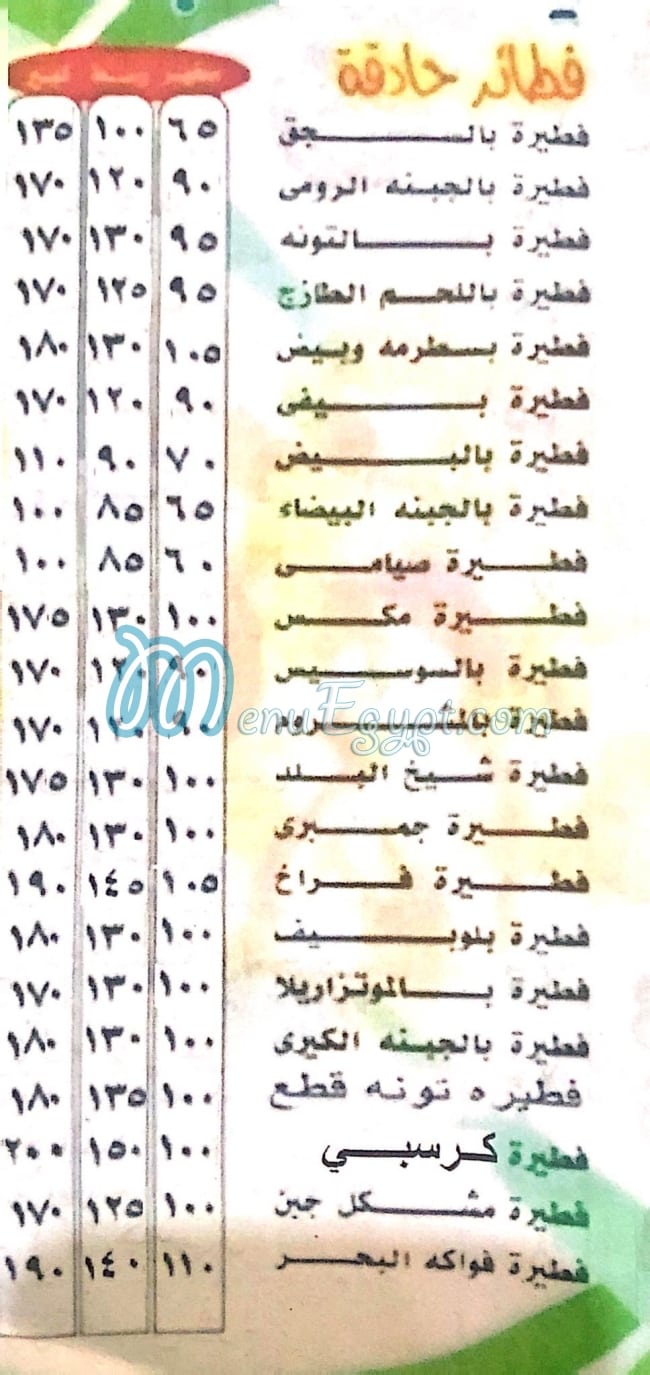 فطائر حادقة
صغير وسط كبير
فطيرة بالسجق ٦٥ ١٠٠ ١٣٥
فطيرة بالجبنه الرومى ٩٠ ١٢٠ ١٧٠
فطيرة بالتونه ٩٥ ١٣٠ ١٧٠
فطيرة باللحم الطازج ٩٥ ١٢٥ ١٧٠
فطيرة بسطرمه وبيض ١٠٥ ١٣٠ ١٨٠
فطيرة بيفى ٩٠ ١٢٠ ١٧٠
فطيرة بالبيض ٧٠ ٩٠ ١١٠
فطيرة بالجبنه البيضاء ٦٥ ٨٥ ١٠٠
فطيرة صيامى ٦٠ ٨٥ ١٠٠
فطيرة مكس ١٠٠ ١٣٠ ١٧٥
فطيرة بالسوسيس ٩٠ ١٢٠ ١٧٠
فطيرة بالشروم ٩٠ ١٢٠ ١٧٠
فطيرة شيخ البلد ١٠٠ ١٣٠ ١٧٥
فطيرة جمبرى ١٠٠ ١٣٠ ١٨٠
فطيرة فراخ ١٠٥ ١٤٥ ١٩٠
فطيرة بلوبيف ١٠٠ ١٣٠ ١٨٠
فطيرة بالموتزاريلا ١٠٠ ١٣٠ ١٧٠
فطيرة بالجبنه الكيرى ١٠٠ ١٣٠ ١٨٠
فطيره تونه قطع ١٠٠ ١٣٥ ١٨٠
فطيرة كرسبي ١٠٠ ١٥٠ ٢٠٠
فطيرة مشكل جبن ١٠٠ ١٢٥ ١٧٠
فطيرة فواكه البحر ١١٠ ١٤٠ ١٩٠
MenuEgypt.com